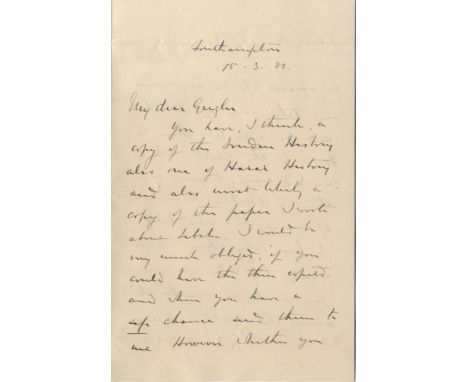 Southampton
15 - 3. 81.
My dear Geigler
You have, I think, a
copy of the Soudan History
also one of Harar History
and also most likely a
copy of the paper I wrote
about I would be
very much obliged, if you
could have the three copied
and when you have a
safe chance send them to
me. However, whether you